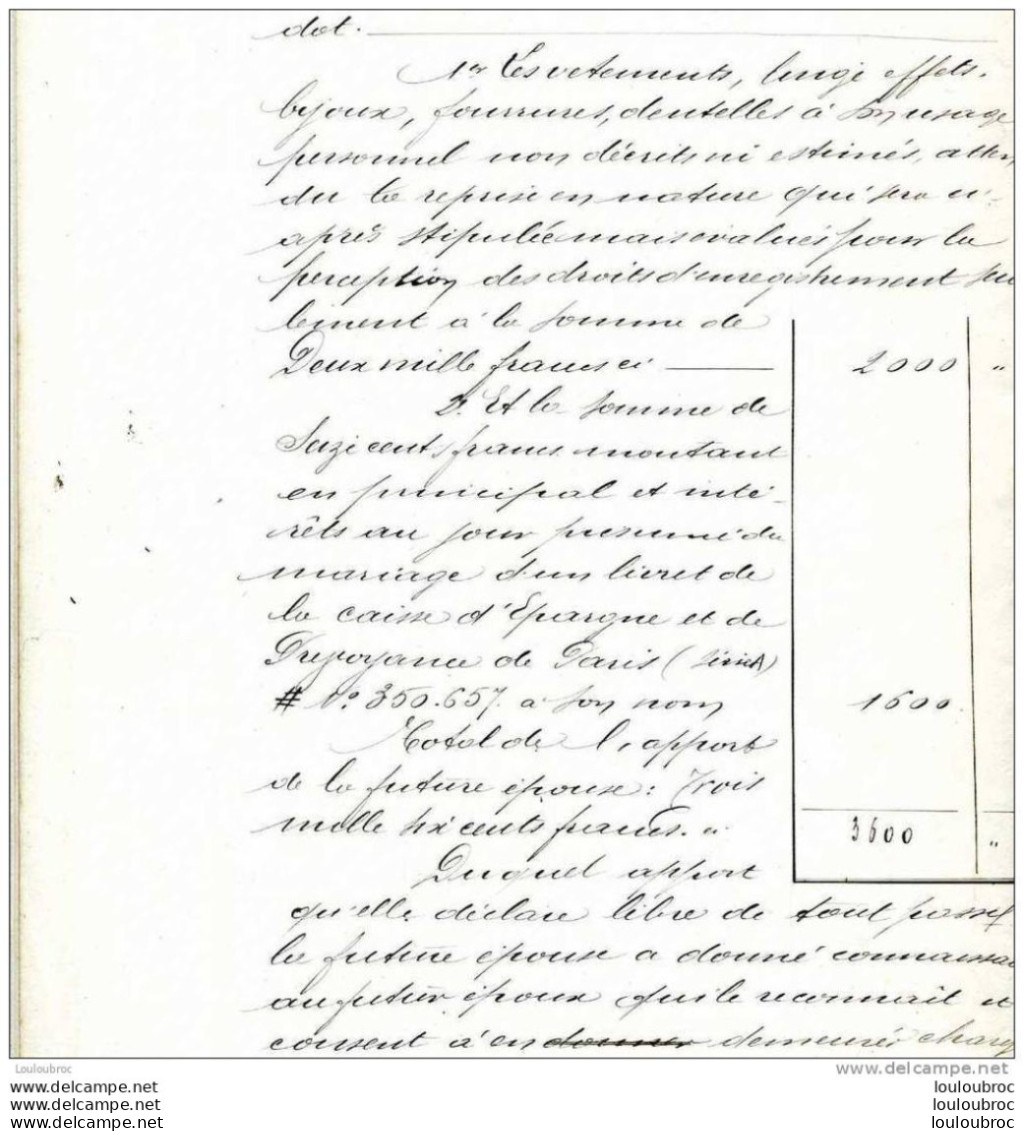 dot.
1er Les vetements, linge effets.
bijoux, fourrures, dentelles à son usage
personnel non décrits ni estimés, atten
du la reprise en nature qui sera ci-
après stipulée mais évalués pour la
perception des droits d'enregistrement seu
lement à la somme de
Deux mille francs ci 2000 "
2. Et la somme de
Seize cents francs montant
en principal et inté-
rêts au jour présumé du
mariage d'un livret de
la caisse d'Epargne et de
Prevoyance de Paris (série A)
# No. 350.657. à son nom 1600.
Total de l'apport
de la future épouse: Trois
mille six cents francs. " 3600 "
Duquel apport
qu'elle déclare libre de tout passif
la future épouse a donné connaissan
au futur époux qui le reconnait et
consent à en donner demeurer charg
Louloubroc
delcampe.net
www.delcampe.com louloubroc
www.delcampe.it louloubroc
www.delcampe.net louloubroc